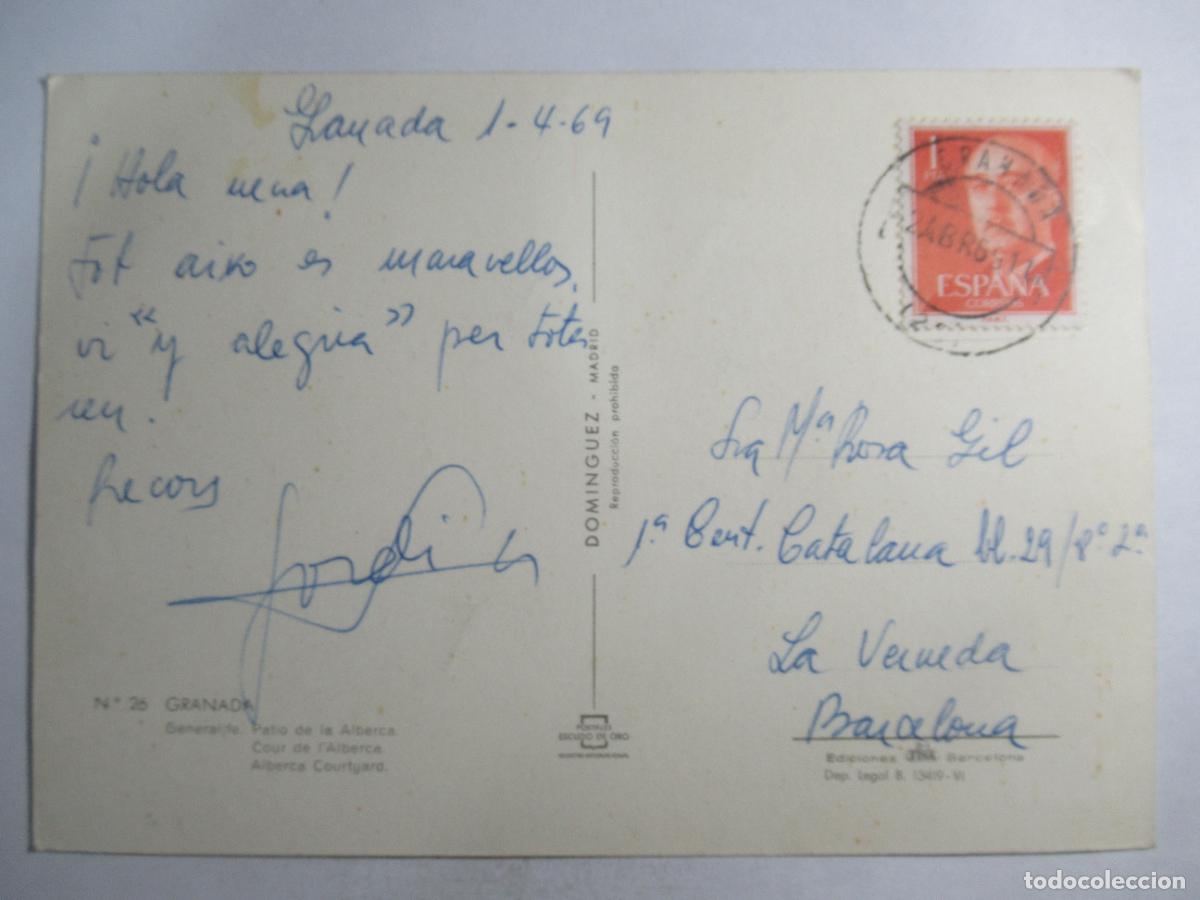 Granada 1-4-69
¡Hola nena!
Tot aixo es maravellos,
vi "y alegria" per totes
Recors
Jordi
Nº 26 GRANADA
Generalife. Patio de la Alberca.
Cour de l'Alberca.
Alberca Courtyard.
DOMINGUEZ - MADRID
Reproducción prohibida
POSTALES
ESCUDO DE ORO
1
ESPAÑA
CORREOS
GRANADA
2 ABR 69
Sra Mª Rosa Gil
1ª Cent. Catalana bl. 29/8º 2ª
La Verneda
Barcelona
Ediciones Barcelona
Dep. Legal B. 13419-VI
todocoleccion